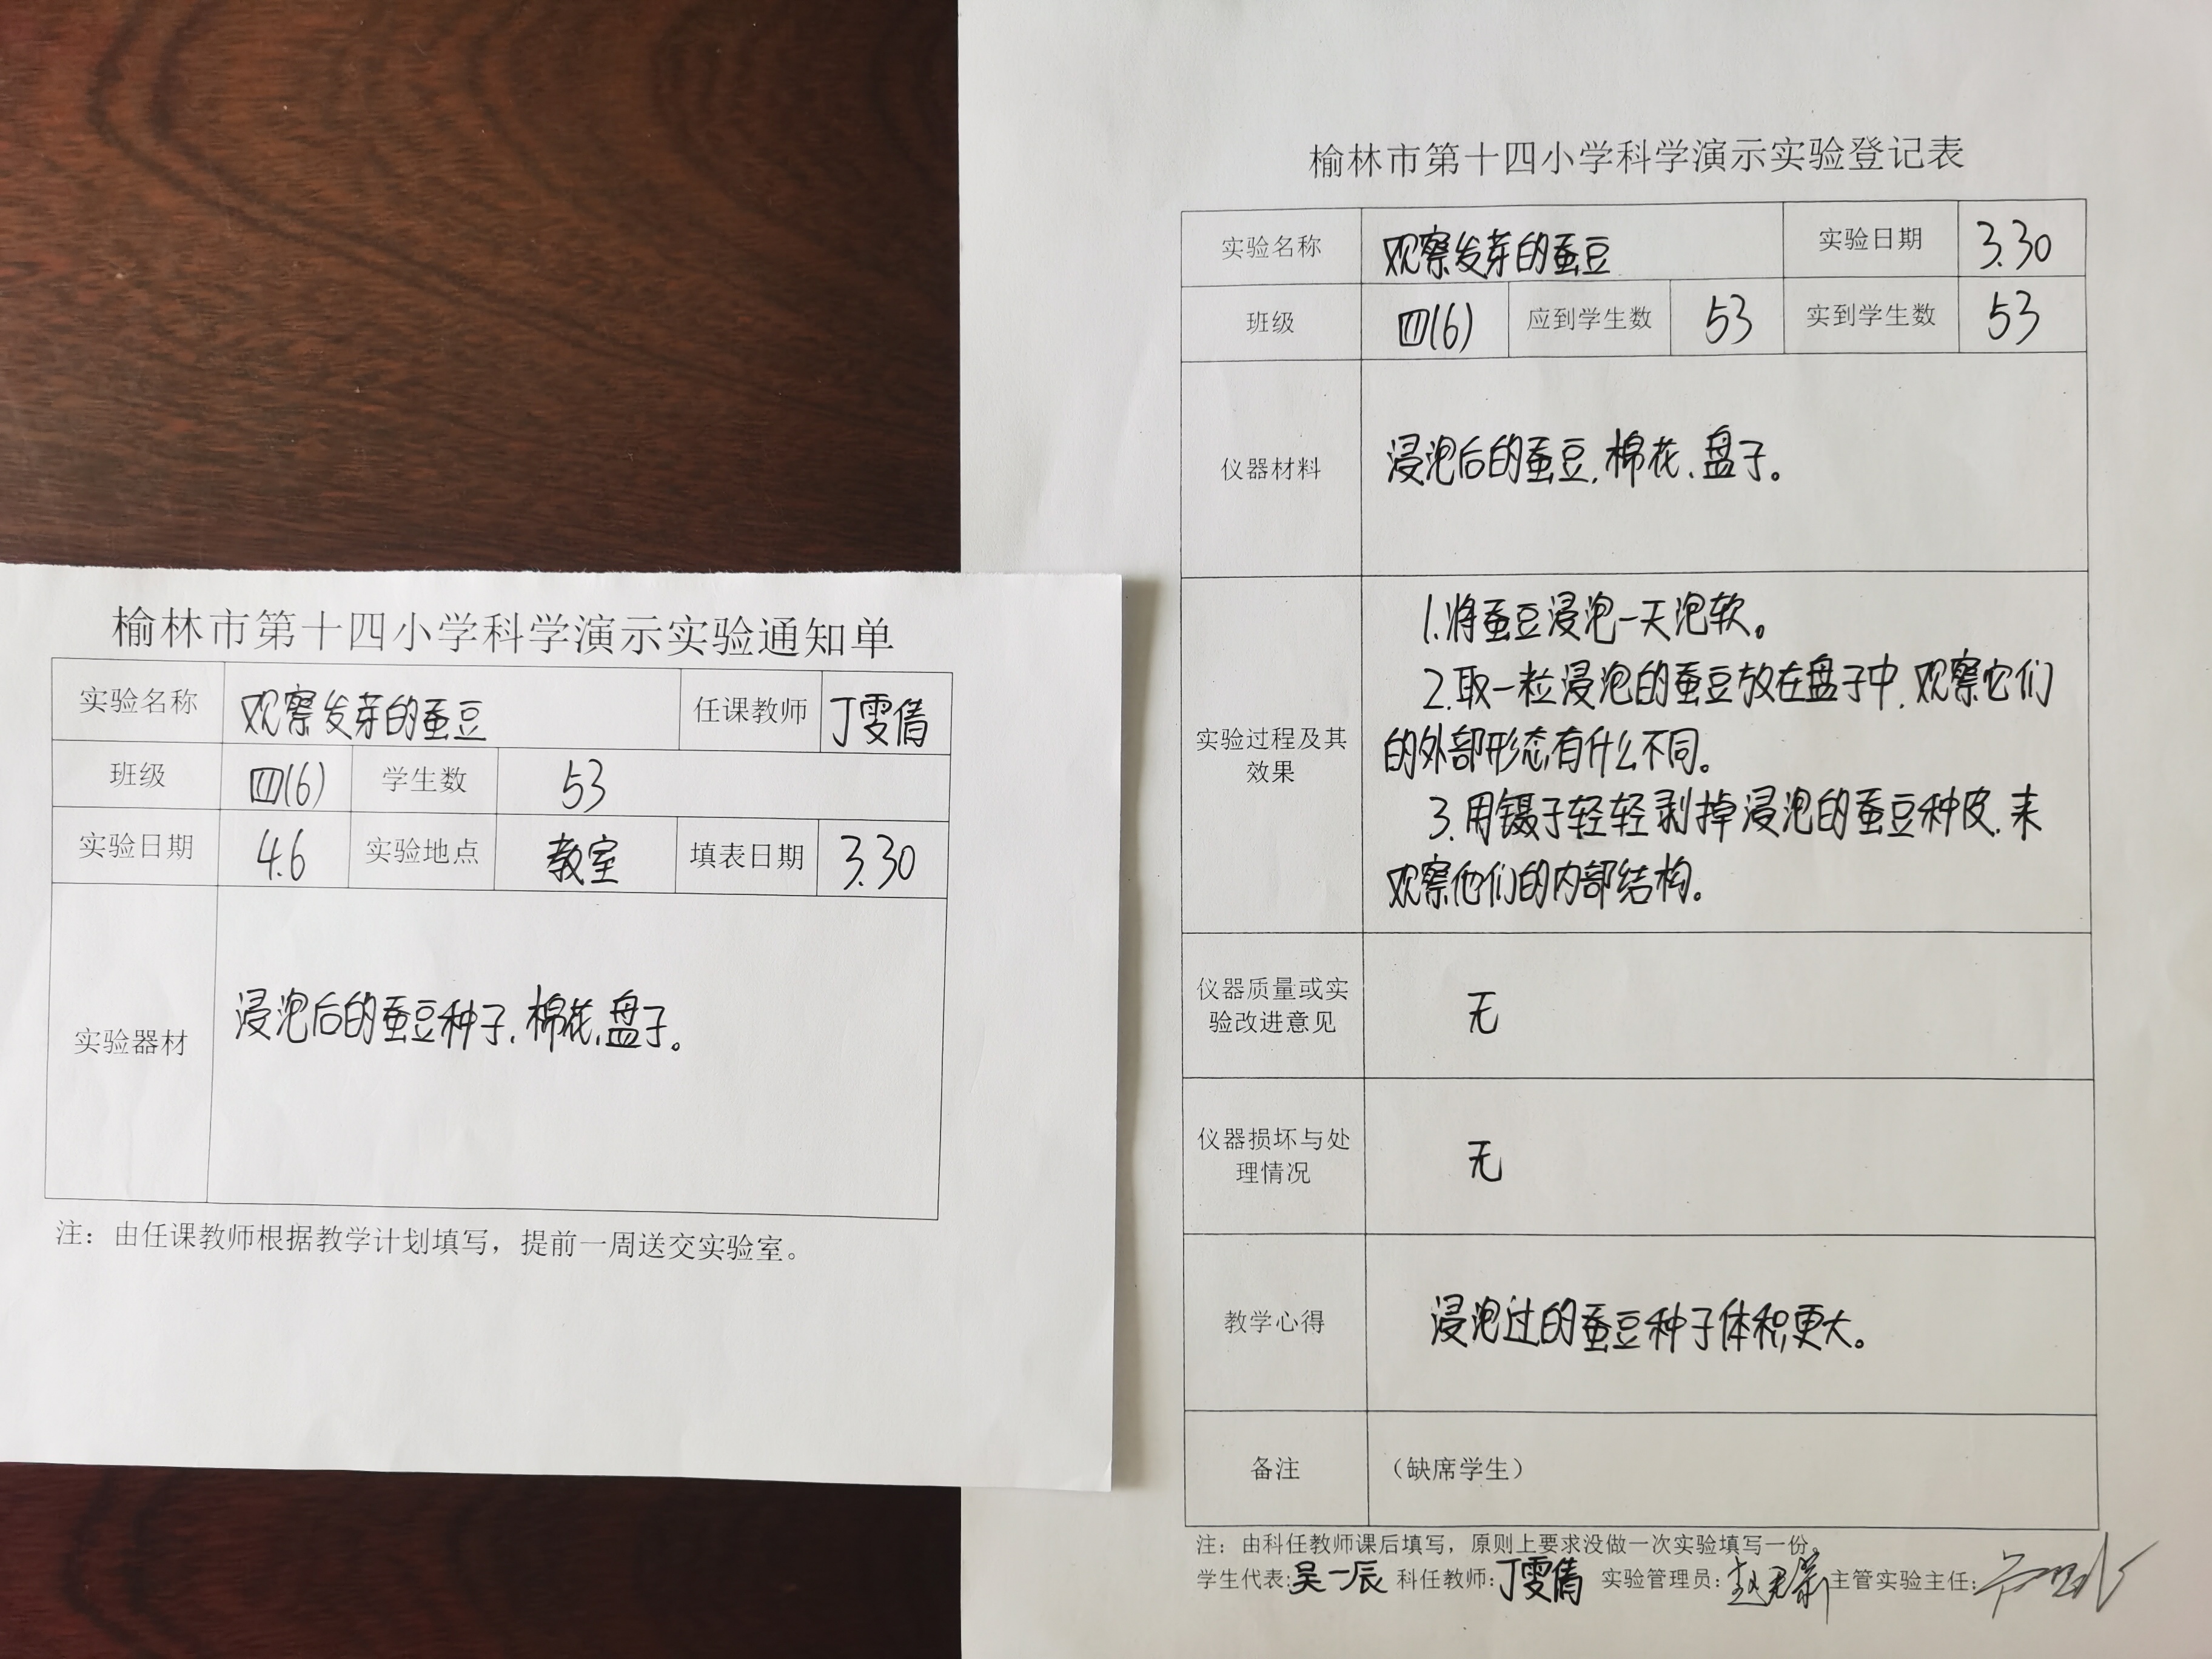 榆林市第十四小学科学演示实验通知单
实验名称 观察发芽的蚕豆 任课教师 丁雯倩
班级 四(6) 学生数 53
实验日期 4.6 实验地点 教室 填表日期 3.30
实验器材 浸泡后的蚕豆种子、棉花、盘子。
注：由任课教师根据教学计划填写，提前一周送交实验室。
榆林市第十四小学科学演示实验登记表
实验名称 观察发芽的蚕豆 实验日期 3.30
班级 四(6) 应到学生数 53 实到学生数 53
仪器材料 浸泡后的蚕豆、棉花、盘子。
实验过程及其
效果
1.将蚕豆浸泡一天泡软。
2.取一粒浸泡的蚕豆放在盘子中，观察它们
的外部形态有什么不同。
3.用镊子轻轻剥掉浸泡的蚕豆种皮，来
观察他们的内部结构。
仪器质量或实
验改进意见
无
仪器损坏与处
理情况
无
教学心得 浸泡过的蚕豆种子体积更大。
备注 （缺席学生）
注：由科任教师课后填写，原则上要求没做一次实验填写一份。
学生代表：吴一辰 科任教师：丁雯倩 实验管理员： 主管实验主任：